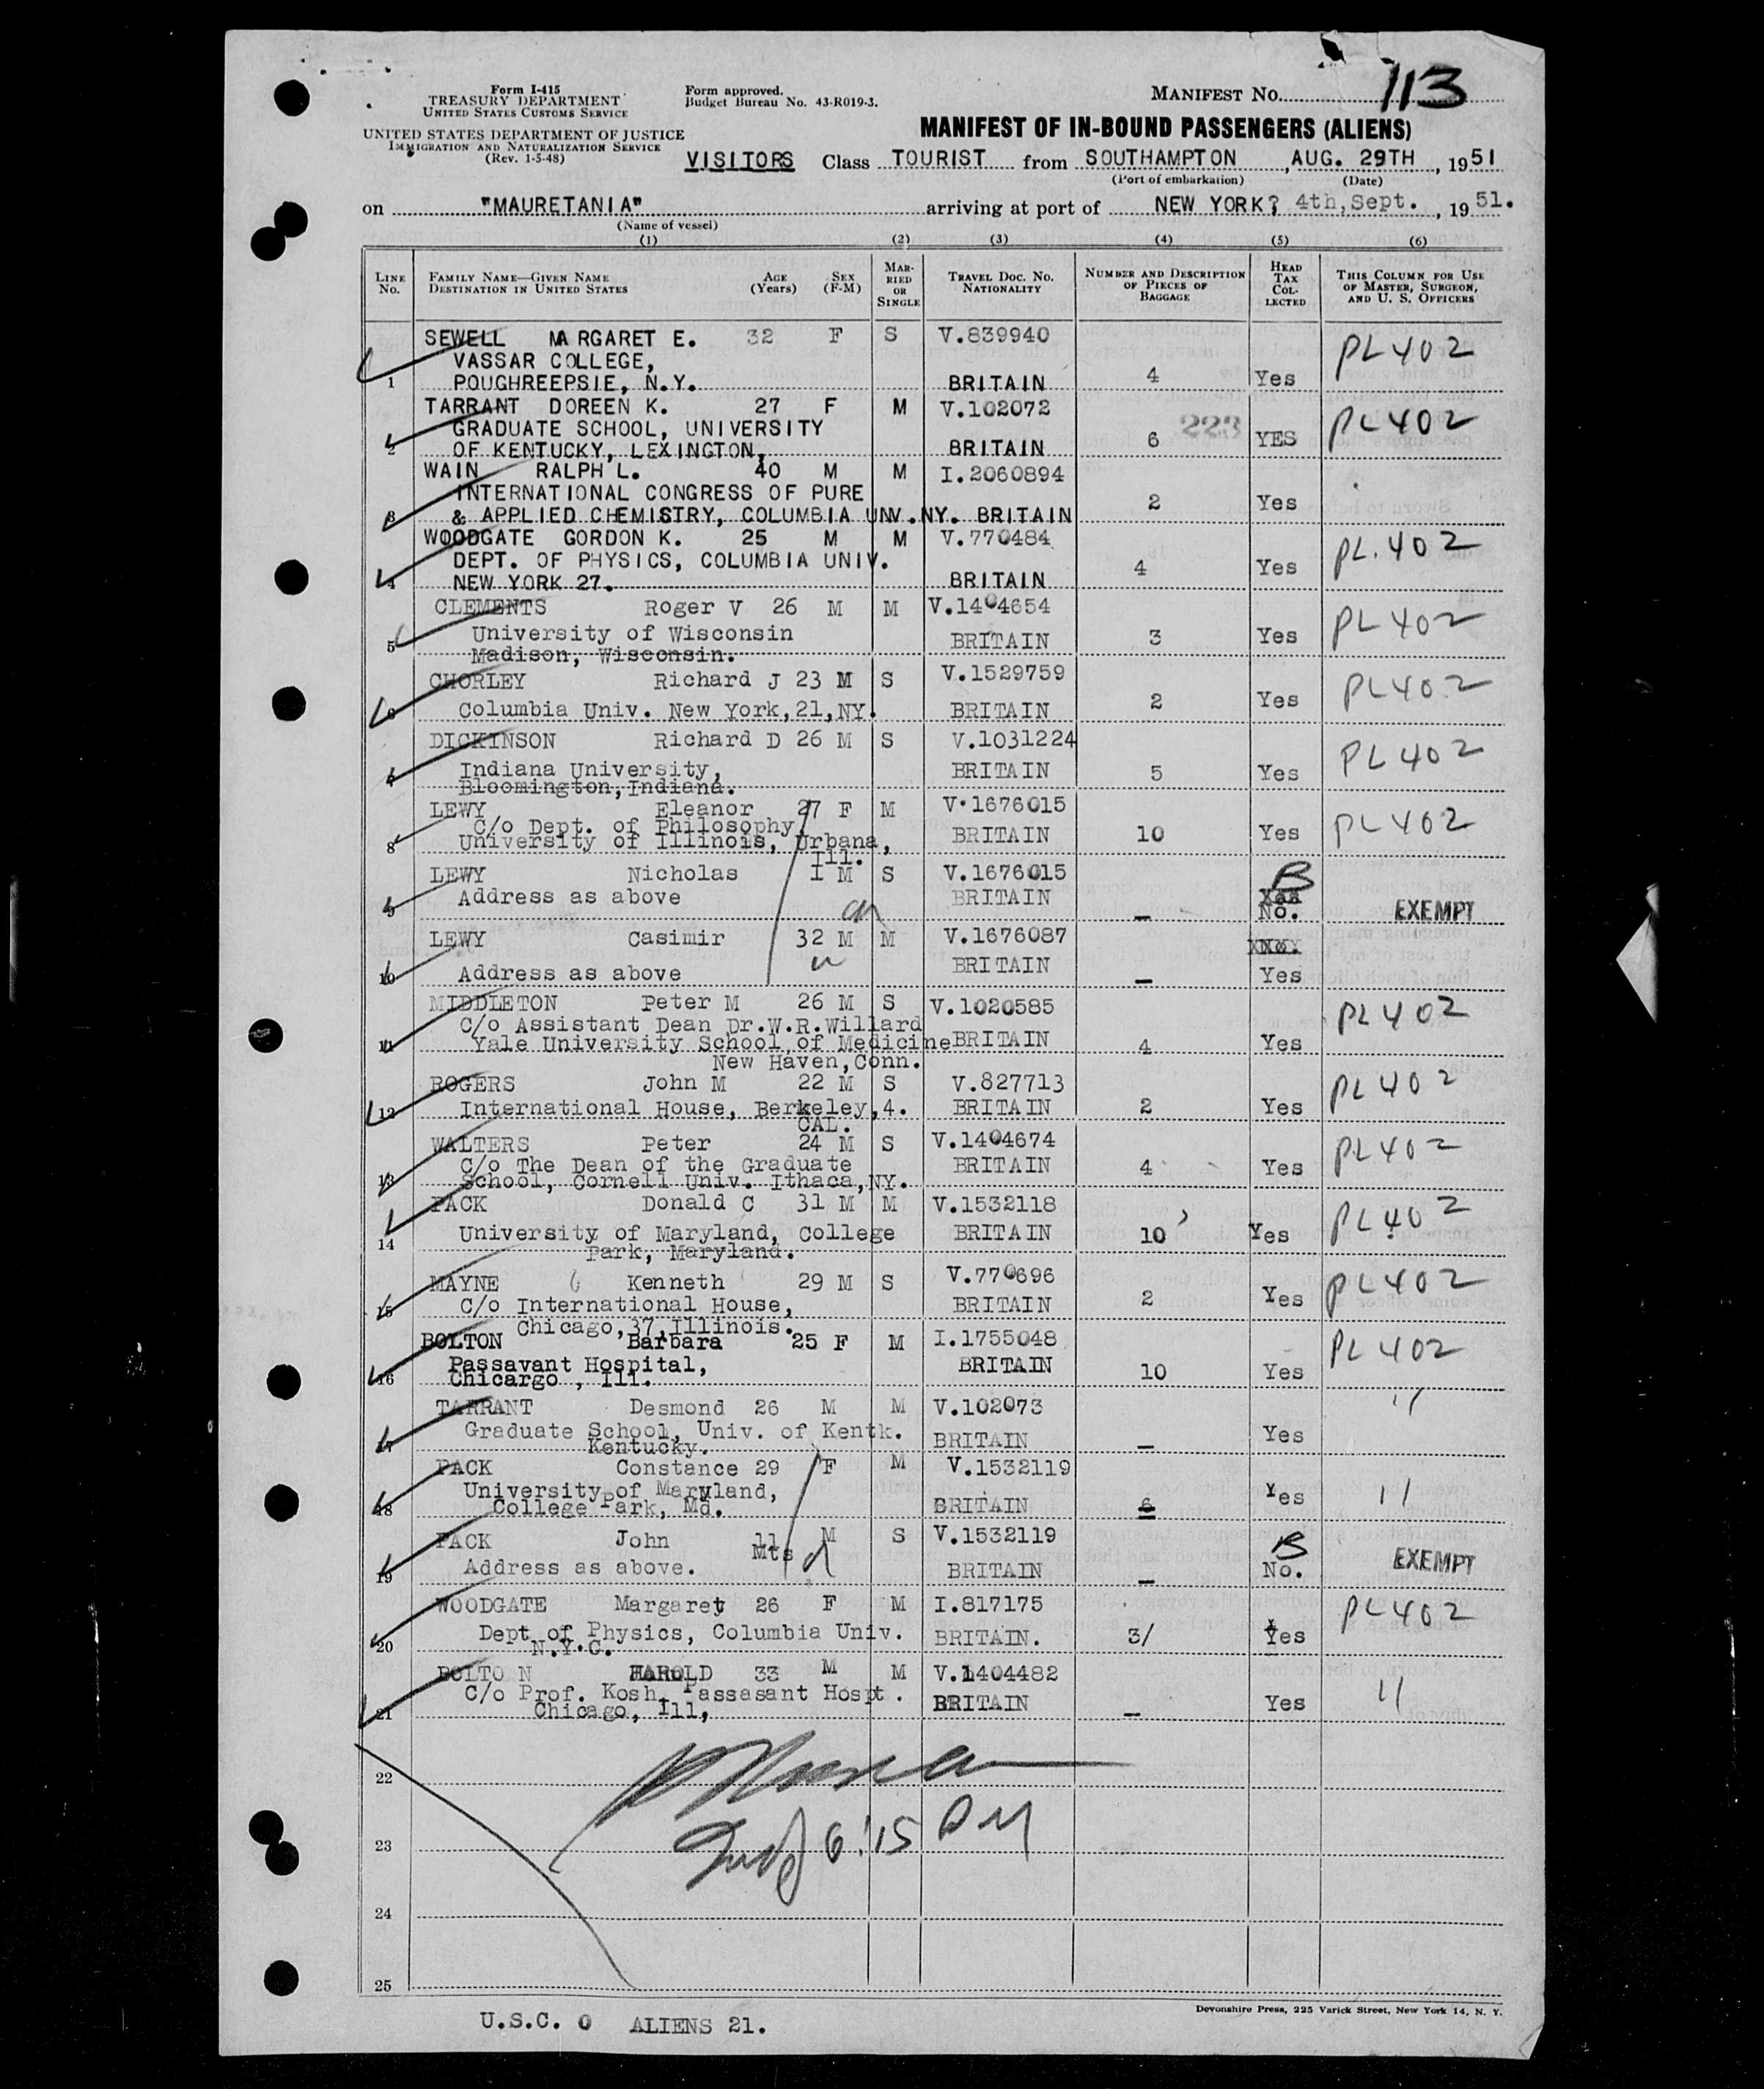 Form I-415
TREASURY DEPARTMENT
UNITED STATES CUSTOMS SERVICE
UNITED STATES DEPARTMENT OF JUSTICE
IMMIGRATION AND NATURALIZATION SERVICE
(Rev. 1-5-48)
Form approved.
Budget Bureau No. 43-R019-3.
MANIFEST NO. 113
MANIFEST OF IN-BOUND PASSENGERS (ALIENS)
VISITORS Class TOURIST from SOUTHAMPTON, AUG. 29TH, 1951
(Port of embarkation) (Date)
on "MAURETANIA" arriving at port of NEW YORK, 4th, Sept., 1951.
(Name of vessel)
(1) (2) (3) (4) (5) (6)
LINE NO. FAMILY NAME—GIVEN NAME DESTINATION IN UNITED STATES AGE (Years) SEX (F-M) MARRIED OR SINGLE TRAVEL DOC. NO. NATIONALITY NUMBER AND DESCRIPTION OF PIECES OF BAGGAGE HEAD TAX COLLECTED THIS COLUMN FOR USE OF MASTER, SURGEON, AND U. S. OFFICERS
SEWELL MARGARET E. 32 F S V.839940 PL402
VASSAR COLLEGE,
1 POUGHREEPSIE, N.Y. BRITAIN 4 Yes
TARRANT DOREEN K. 27 F M V.102072 PL402
GRADUATE SCHOOL, UNIVERSITY 223
2 OF KENTUCKY, LEXINGTON, BRITAIN 6 YES
WAIN RALPH L. 40 M M I.2060894
INTERNATIONAL CONGRESS OF PURE 2 Yes
3 & APPLIED CHEMISTRY, COLUMBIA UNV.NY. BRITAIN
WOODGATE GORDON K. 25 M M V.770484 PL.402
DEPT. OF PHYSICS, COLUMBIA UNIV. 4 Yes
4 NEW YORK 27. BRITAIN
CLEMENTS Roger V 26 M M V.1404654 PL402
5 University of Wisconsin BRITAIN 3 Yes
Madison, Wisconsin.
CHORLEY Richard J 23 M S V.1529759 PL402
6 Columbia Univ. New York,21,NY. BRITAIN 2 Yes
DICKINSON Richard D 26 M S V.1031224 PL402
Indiana University, BRITAIN 5 Yes
Bloomington,Indiana.
LEWY Eleanor 27 F M V.1676015 PL402
C/o Dept. of Philosophy,
8 University of Illinois, Urbana, BRITAIN 10 Yes
Ill.
LEWY Nicholas 1 M S V.1676015 B
9 Address as above BRITAIN _ Yes
No. EXEMPT
LEWY Casimir 32 M M V.1676087 No.
10 Address as above BRITAIN _ Yes
MIDDLETON Peter M 26 M S V.1020585 PL402
C/o Assistant Dean Dr.W.R.Willard
11 Yale University School of Medicine BRITAIN 4 Yes
New Haven,Conn.
ROGERS John M 22 M S V.827713 PL402
12 International House, Berkeley,4. BRITAIN 2 Yes
CAL.
WALTERS Peter 24 M S V.1404674 PL402
C/o The Dean of the Graduate BRITAIN 4 Yes
13 School, Cornell Univ. Ithaca,NY.
PACK Donald C 31 M M V.1532118 PL402
14 University of Maryland, College BRITAIN 10 Yes
Park, Maryland.
MAYNE Kenneth 29 M S V.770696 PL402
15 C/o International House, BRITAIN 2 Yes
Chicago,37,Illinois.
BOLTON Barbara 25 F M I.1755048 PL402
Passavant Hospital, BRITAIN 10 Yes
16 Chicargo , Ill.
TARRANT Desmond 26 M M V.102073 "
Graduate School, Univ. of Kentk. BRITAIN _ Yes
17 Kentucky.
PACK Constance 29 F M V.1532119
University of Maryland, Yes "
18 College Park, Md. BRITAIN 6
PACK John 11 M S V.1532119 B
Mts
19 Address as above. BRITAIN _ No. EXEMPT
WOODGATE Margaret 26 F M I.817175 PL402
20 Dept of Physics, Columbia Univ. BRITAIN. 3/ Yes
N.Y.C.
BOLTO N HAROLD 33 M M V.1404482
C/o Prof. Kosh, Passasant Hospt. BRITAIN _ Yes "
21 Chicago, Ill,
22
23 6:15 PM
24
25
Devonshire Press, 225 Varick Street, New York 14, N. Y.
U.S.C. 0 ALIENS 21.